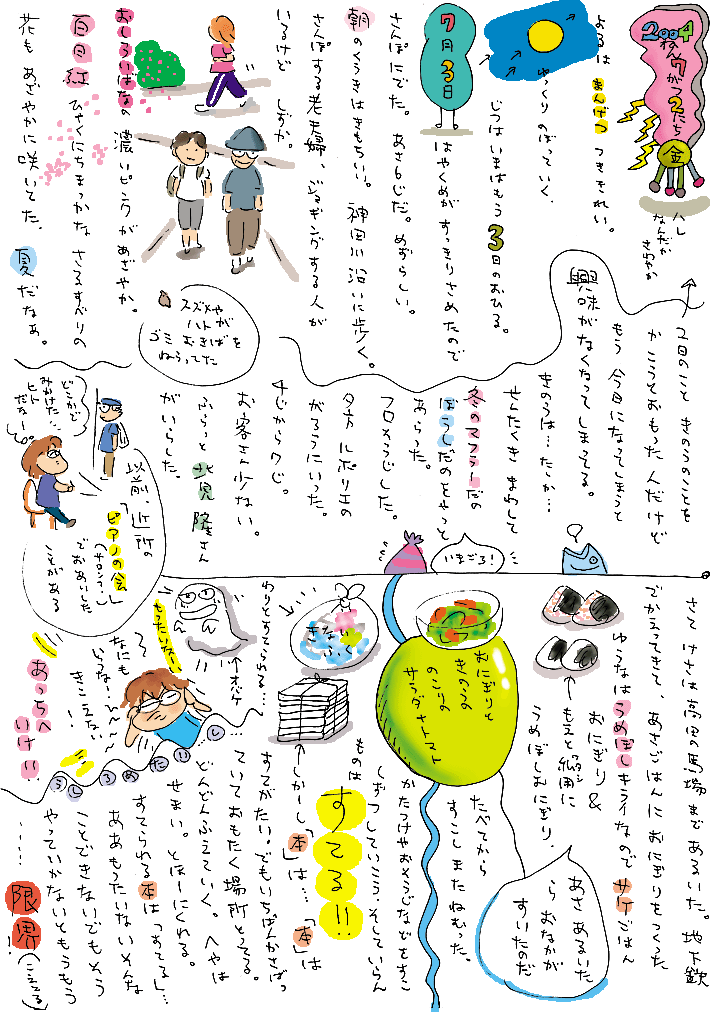 2004
ねん
7がつ
2たち
金
ハレ
なんだか
さわやか
よるは まんげつ つききれい。
ゆっくり のぼっていく。
じつは いまはもう 3日のおひる。
7月3日
はやくめが すっきりさめたので
さんぽにでた。 あさ6じだ。めずらしい。
朝のくうきはきもちいい。 神田川沿いに歩く。
さんぽする老夫婦、ジョギングする人が
いるけど しずか。
おしろいばなの濃いピンクがあざやか。
百日紅 ひゃくにちまっかな さるすべりの
花も あざやかに咲いてた。 夏だなぁ。
スズメや
ハトが
ゴミおきばを
ねらってた
2日のこと きのうのことを
かこうとおもったんだけど
もう今日になってしまうと
興味がなくなってしまってる。
きのうは…たしか…
せんたくき まわして
冬のマフラーだの
ぼうしだのをやっと
あらった。
フロそうじした。
夕方 ルポリエの
がろうにいった。
4じから7じ。
お客さん少ない。
ふらっと 北見隆さん
がいらした。
いまごろ!
どこかで
みかけた…
ヒト
だな…
以前、近所の
「ピアノの会」
(サロンコン)
でおあいした
ことがある
さて けさは高田の馬場まであるいた。 地下鉄
でかえってきて、あさごはんに おにぎりをつくった
ゆうなは うめぼしキライなので サケごはん
おにぎり&
もえと絹用に
(ワタシ)
うめぼしおにぎり。
おにぎりと
きのうの
のこりの
サラダとトマト
あさあるいた
らおなかが
すいたのだ
たべてから
すこし またねむった。
かたつけやおそうじなどをすこ
しずつしていこう。そしていらん
ものは
すてる!!
しかーし「本」は…「本」は
きない
ふく
わりとすてられる…
すてがたい。でもいちばんかさばっ
ていておもたく場所とってる。
どんどんふえていく。へやは
せまい。とほーにくれる。
すてられる本は「すてる」…
ああもったいないそんな
ことできないでもそう
やっていかないともうもう
……限界(こえてる)!
うしろめたいし…
オバケ
もったいなーい
なにも
いうな…
きこえない
あっちへ
いけ!!